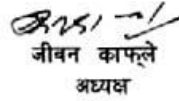 जीवन काफ्ले
अध्यक्ष